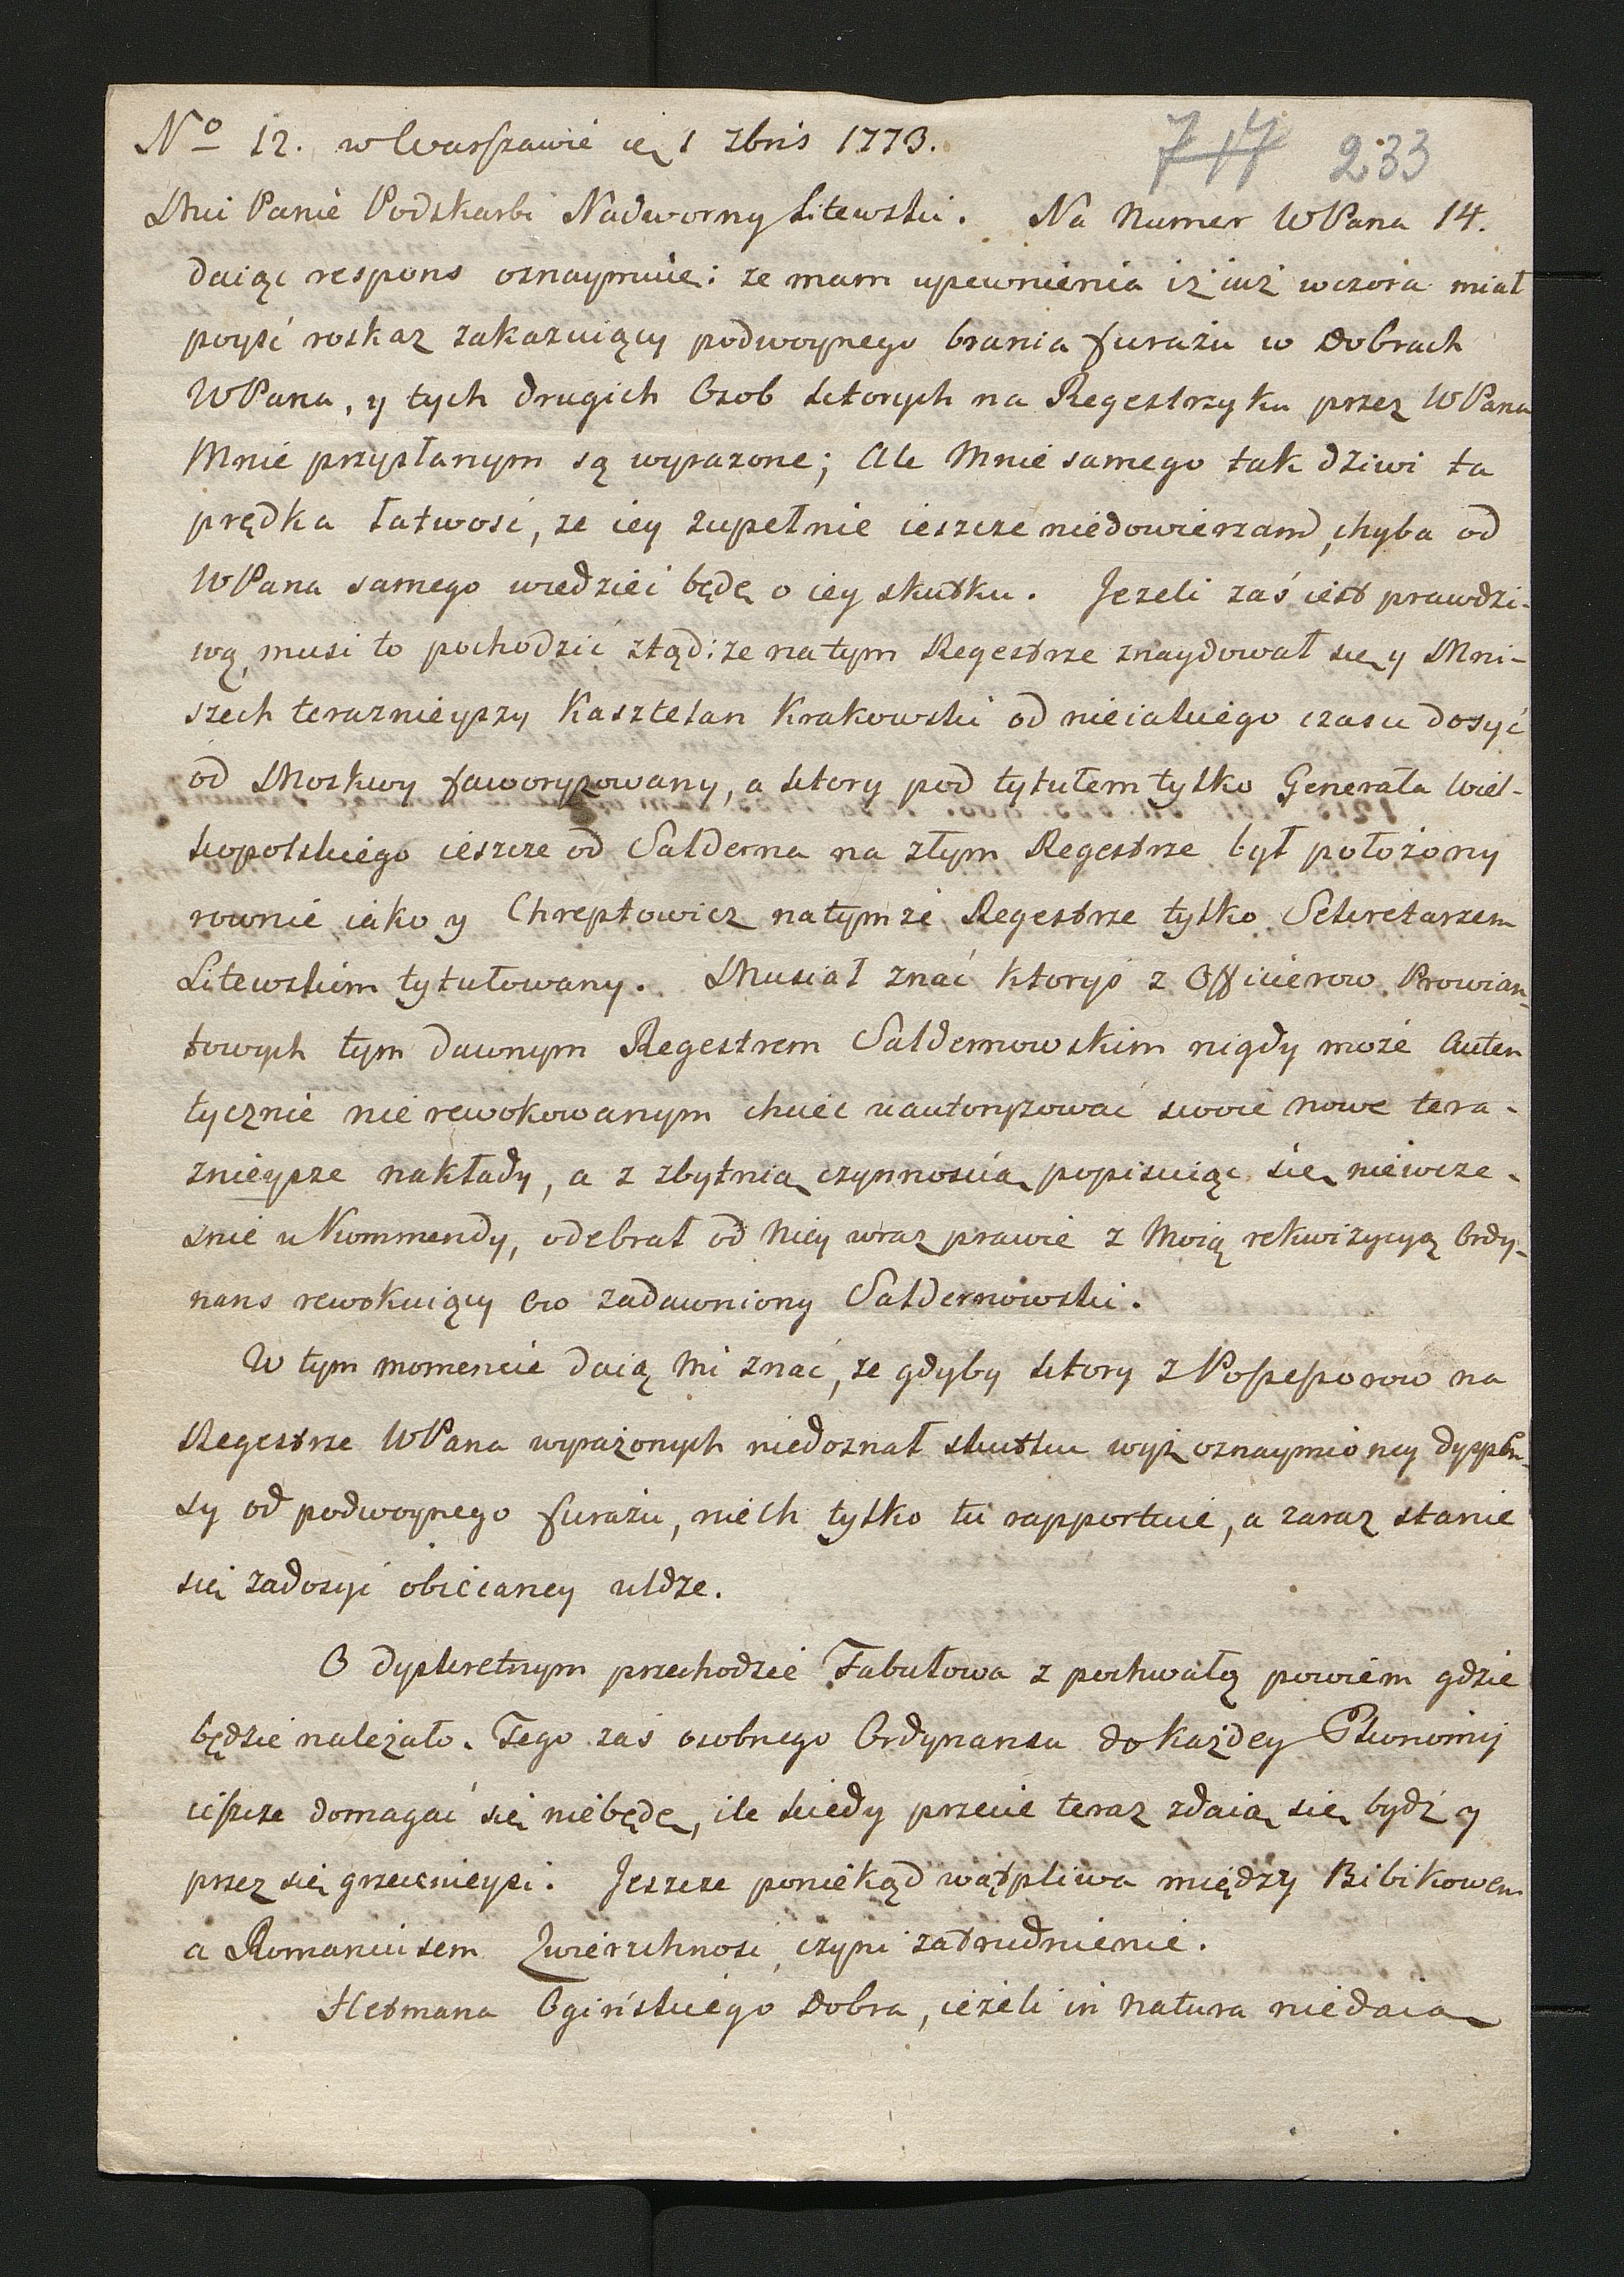 No 12. w Warszawie d. 1 Xbris 1773.
717 233
Mci Panie Podskarbi Nadworny Litewski. Na Numer WPana 14.
daiąc respons oznaymuię: ze mam upewnienia iż iuż wczora miał
poyść roskaz zakazuiący podwoynego brania furażu w Dobrach
WPana, y tych drugich Osob ktorych na Regestrzyku przez WPana
Mnie przysłanym są wyrazone; Ale Mnie samego tak dziwi ta
prędka łatwość, ze iey zupełnie ieszcze niedowierzam, chyba od
WPana samego wiedzieć będę o iey skutku. Jezeli zaś iest prawdzi-
wą, musi to pochodzić ztąd: ze natym Regestrze znaydował się y Mni-
szech teraznieyszy Kasztelan Krakowski od nieiakiego czasu dosyć
od Moskwy faworyzowany, a ktory pod tytułem tylko Generała Wiel-
kopolskiego ieszcze od Salderna na złym Regestrze był położony
rownie iako y Chreptowicz natymże Regestrze tylko Sekretarzem
Litewskim tytułowany. Musiał znać ktoryś z Officierow Prowian-
towych tym dawnym Regestrem Saldernowskim nigdy może Auten
tycznie nie rewokowanym chcieć uautoryzować swoie nowe tera-
znieysze nakłady, a z zbytnią czynnoscią popisuiąc się niewcze-
snie u Kommendy, odebrał od Niey wraz prawie z Moią rekwizycyą Ordy-
nans rewokuiący Ow zadawniony Saldernowski.
W tym momencie daią mi znać, ze gdyby ktory z Possessorow na
Regestrze WPana wyrażonych niedoznał skutku wyż oznaymioney dyspen-
sy od podwoynego furażu, niech tylko tu rapportuie, a zaraz stanie
się zadosyć obiecaney uldze.
O dyskretnym przechodzie Tabułowa z pochwałą powiem gdzie
będzie należało. Tego zaś osobnego Ordynansu do każdey Ekonomij
ieszcze domagać się niebędę, ile kiedy przecie teraz zdaią się bydź y
przez się grzecznieysi. Jeszcze poniekąd wątpliwa między Bibikowem
a Romaniusem Zwierzchność, czyni zatrudnienie.
Hetmana Ogińskiego Dobra, ieżeli in natura niedaią